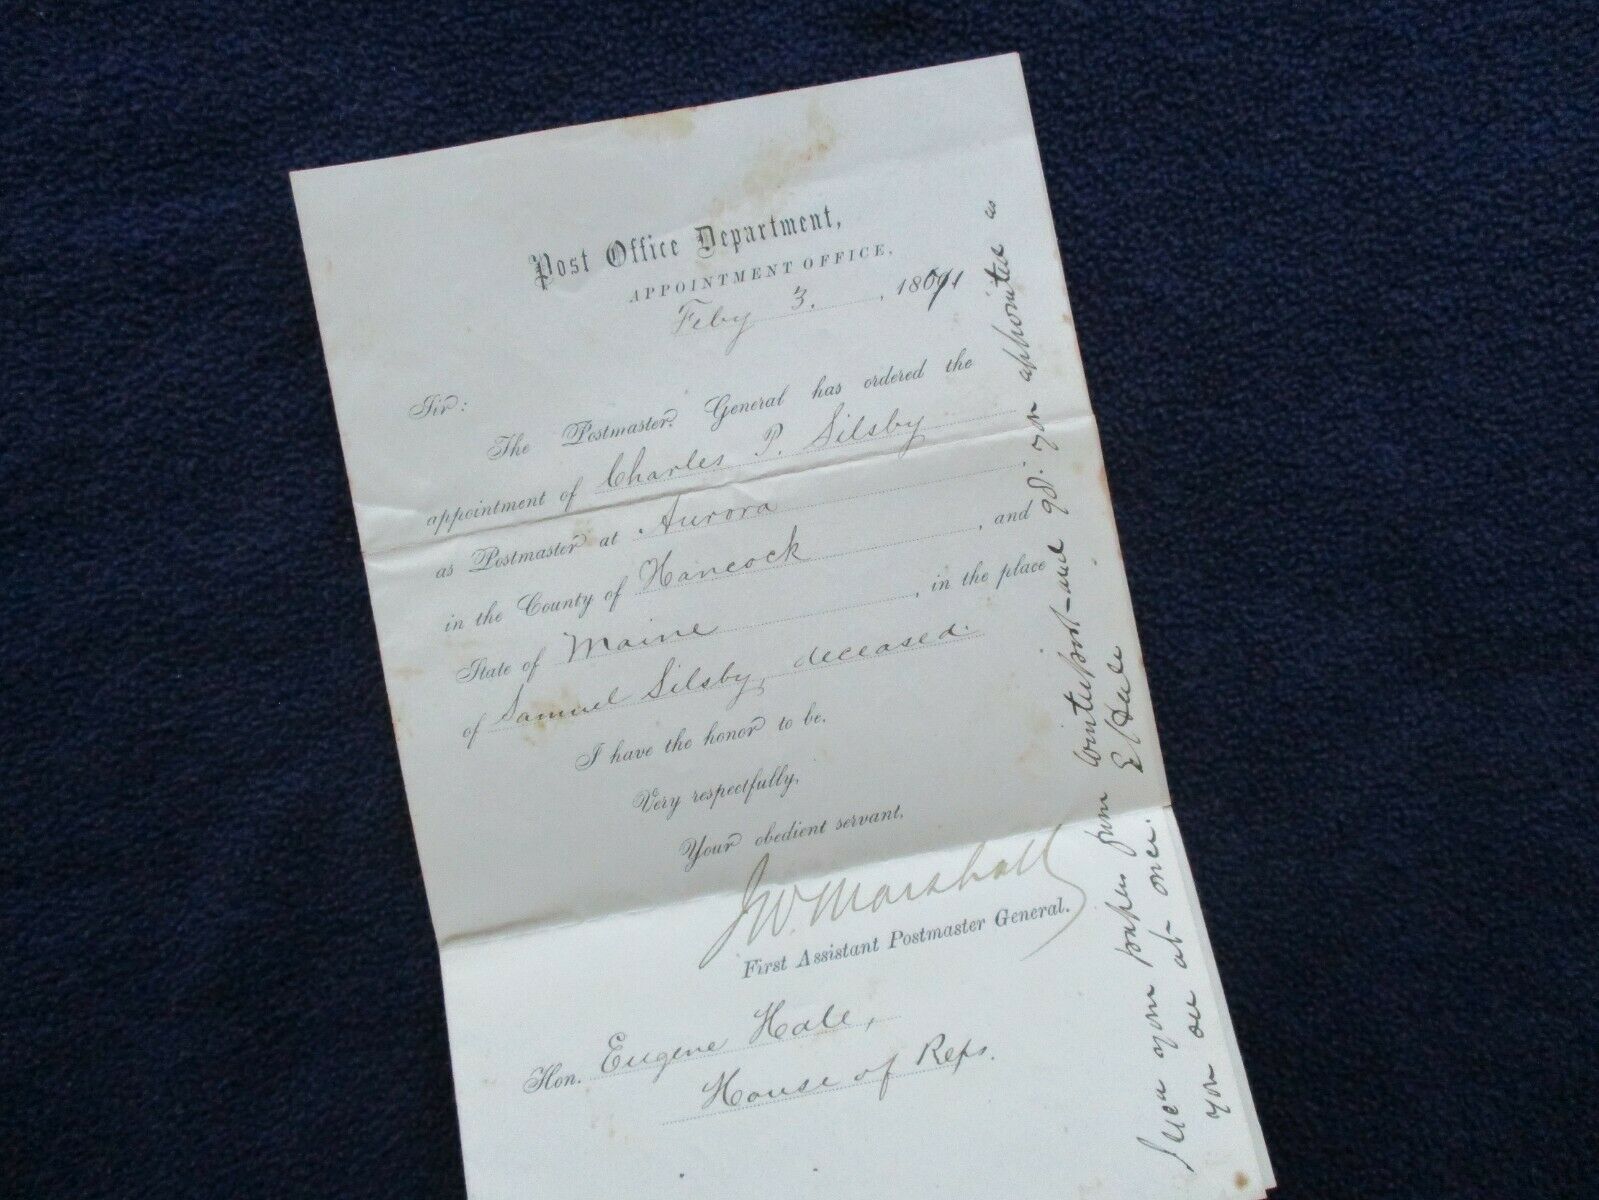 Post Office Department,
APPOINTMENT OFFICE,
Feby 3. , 1871
Sir:
The Postmaster General has ordered the
appointment of Charles P. Silsby
as Postmaster at Aurora ,
in the County of Hancock , and
State of Maine , in the place
of Samuel Silsby, deceased.
I have the honor to be,
Very respectfully,
Your obedient servant,
J W. Marshall
First Assistant Postmaster General.
Hon. Eugene Hale,
House of Reps.
your papers from Winterport and
you appointed as
you at once.
E Hale